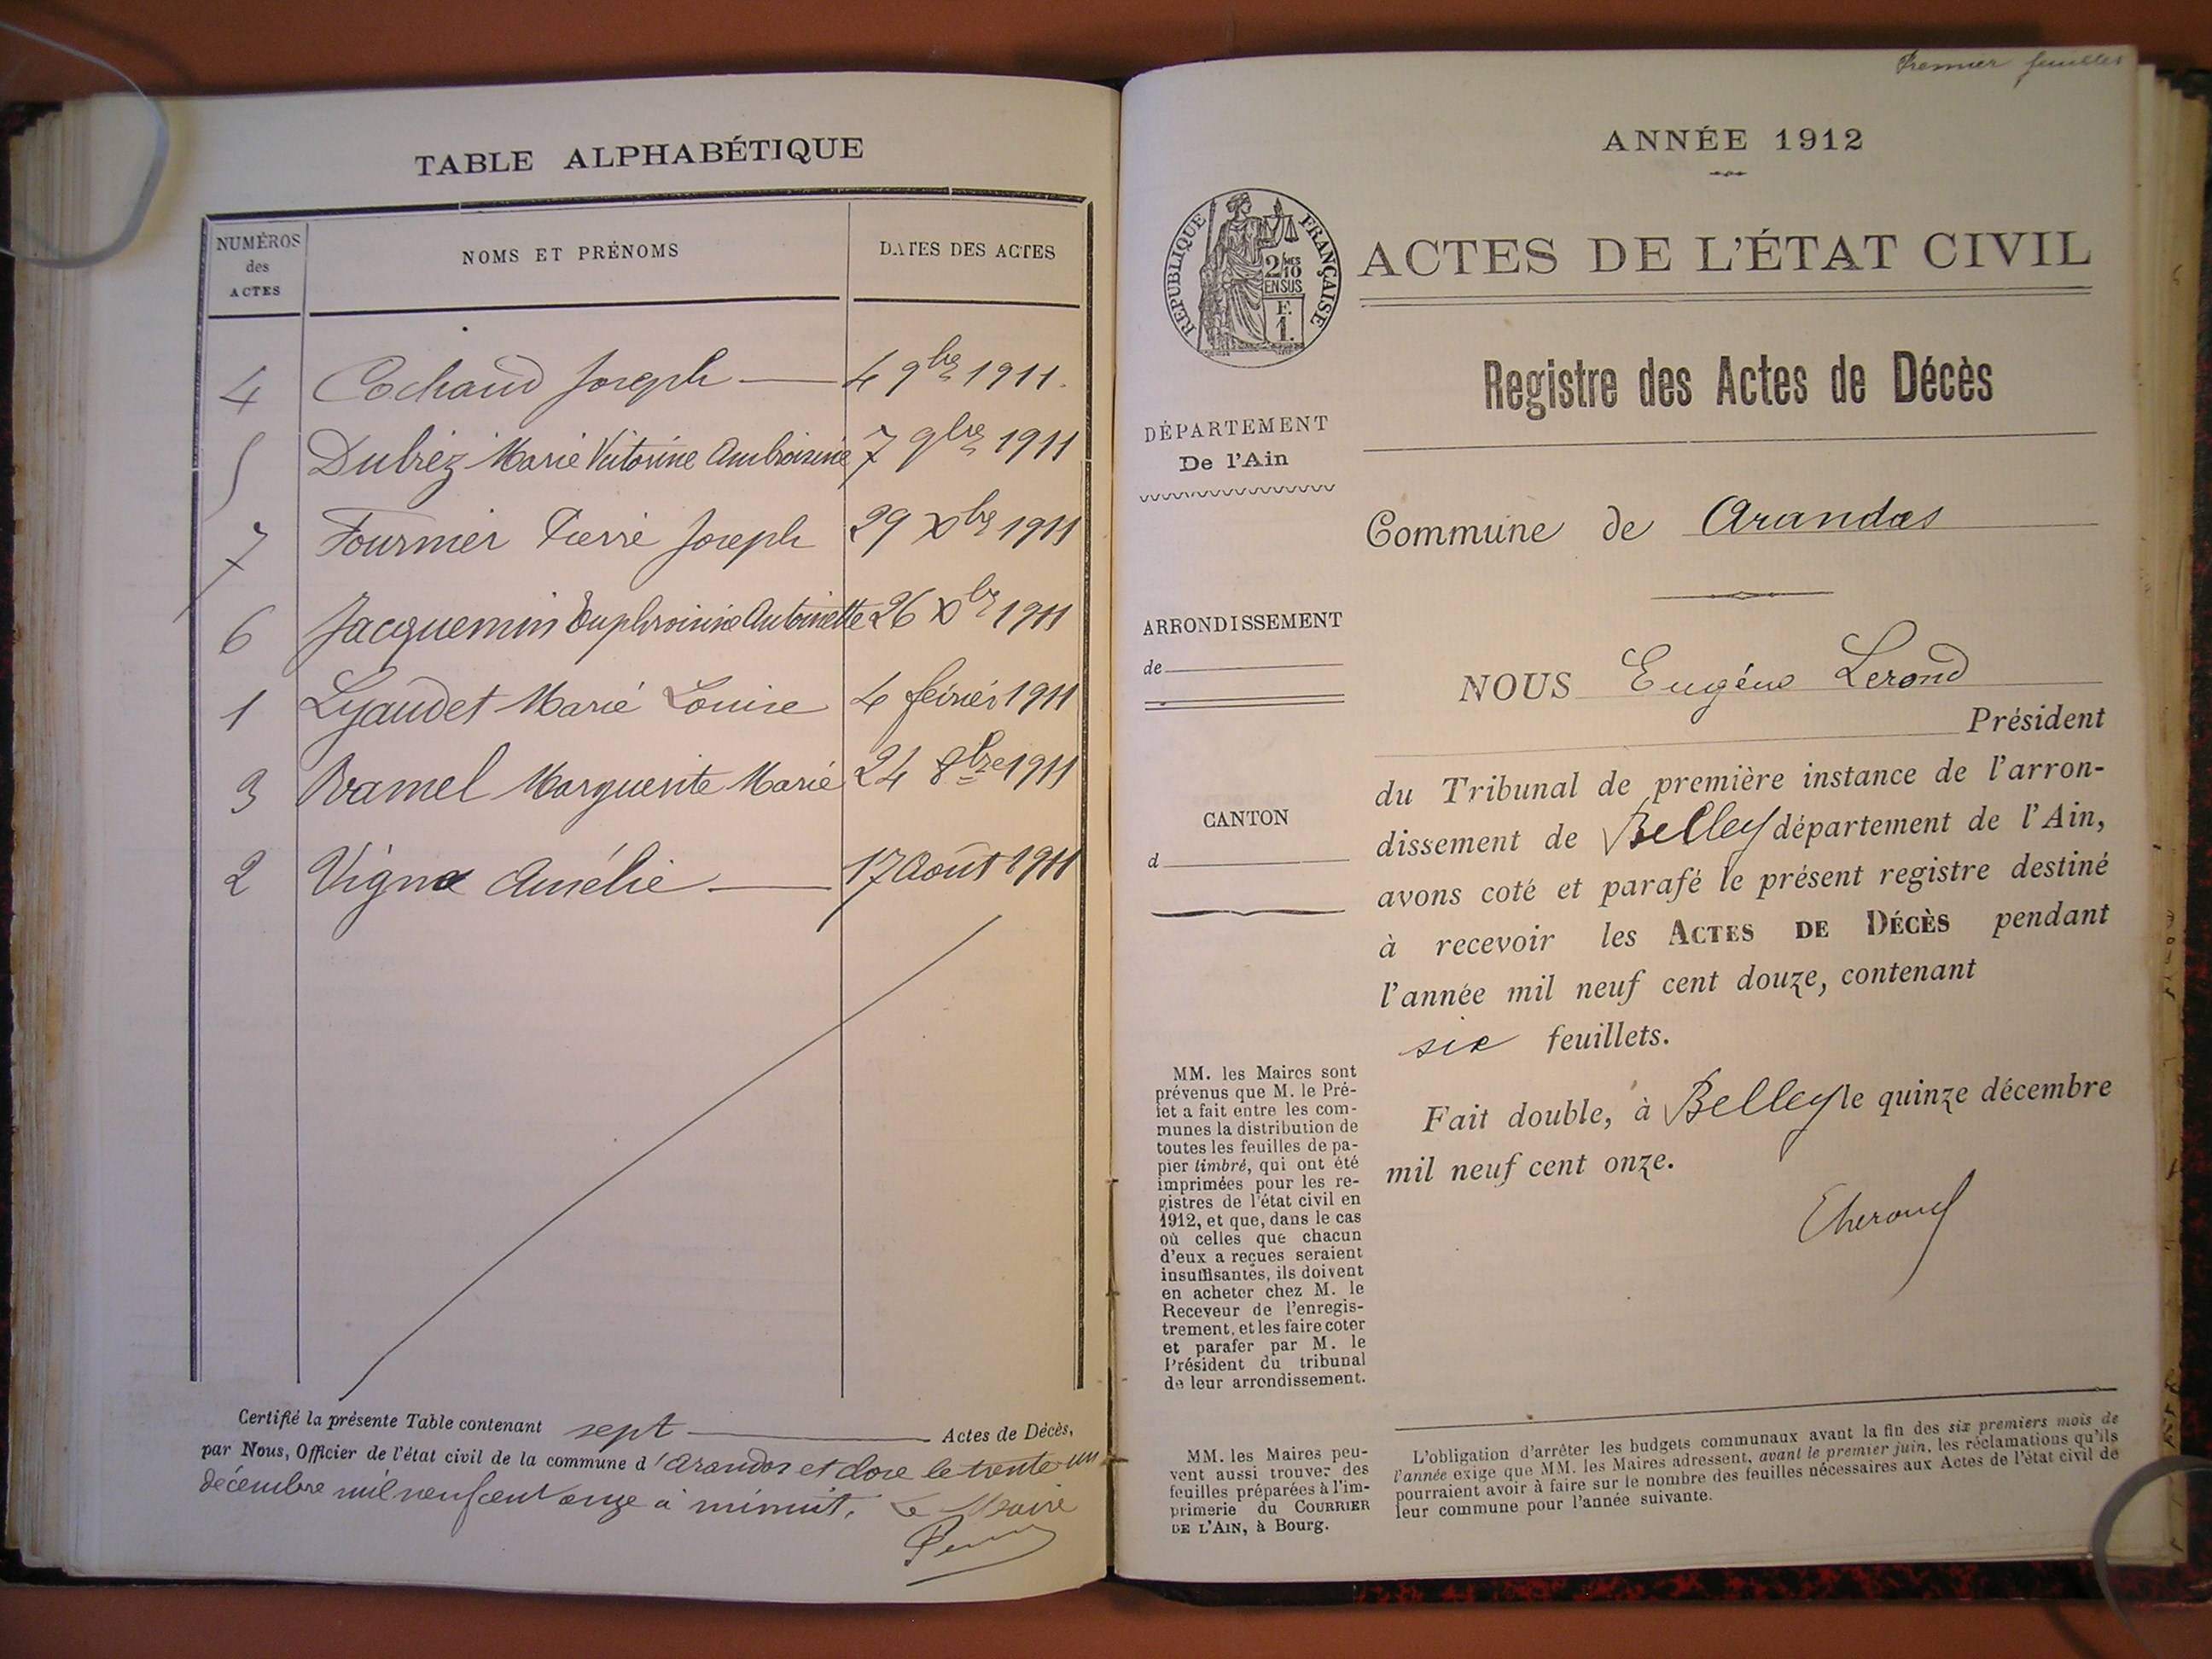 TABLE ALPHABÉTIQUE
NUMÉROS des ACTES
NOMS ET PRÉNOMS
DATES DES ACTES
4 Cochaud Joseph 4 9bre 1911.
5 Dubiez Marie Victorine Ambroisine 7 9bre 1911
7 Fournier Pierre Joseph 29 Xbre 1911
6 Jacquemin Euphroisine Antoinette 26 Xbre 1911
1 Lyaudet Marie Louise 4 février 1911
3 Ramel Marguerite Marie 24 8bre 1911
2 Vigne Amélie 17 Août 1911
Certifié la présente Table contenant sept Actes de Décès,
par Nous, Officier de l'état civil de la commune d'Arandas et close le trente un
décembre mil neuf cent onze à minuit. Le Maire
Premier feuillet
ANNÉE 1912
RÉPUBLIQUE FRANÇAISE
2/10 MES
EN SUS
F.
1.
ACTES DE L'ÉTAT CIVIL
Registre des Actes de Décès
DÉPARTEMENT
De l'Ain
Commune de Arandas
ARRONDISSEMENT
de
CANTON
d
NOUS Eugène Lerond
Président
du Tribunal de première instance de l'arron-
dissement de Belley département de l'Ain,
avons coté et parafé le présent registre destiné
à recevoir les ACTES DE DÉCÈS pendant
l'année mil neuf cent douze, contenant
six feuillets.
Fait double, à Belley le quinze décembre
mil neuf cent onze.
MM. les Maires sont
prévenus que M. le Pré-
fet a fait entre les com-
munes la distribution de
toutes les feuilles de pa-
pier timbré, qui ont été
imprimées pour les re-
gistres de l'état civil en
1912, et que, dans le cas
où celles que chacun
d'eux a reçues seraient
insuffisantes, ils doivent
en acheter chez M. le
Receveur de l'enregis-
trement, et les faire coter
et parafer par M. le
Président du tribunal
de leur arrondissement.
MM. les Maires peu-
vent aussi trouver des
feuilles préparées à l'im-
primerie du COURRIER
DE L'AIN, à Bourg.
L'obligation d'arrêter les budgets communaux avant la fin des six premiers mois de
l'année exige que MM. les Maires adressent, avant le premier juin, les réclamations qu'ils
pourraient avoir à faire sur le nombre des feuilles nécessaires aux Actes de l'état civil de
leur commune pour l'année suivante.